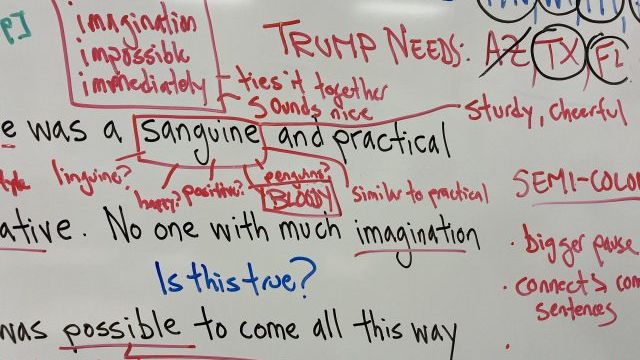 imagination
impossible
immediately
ties it together
sounds nice
TRUMP NEEDS: AZ TX FL
sturdy, cheerful
e was a sanguine and practical
linguine?
happy?
positive?
penguins?
BLOODY
similar to practical
SEMI-COLO
ative. No one with much imagination
Is this true?
• Bigger pause
• connects com
sentences
was possible to come all this way